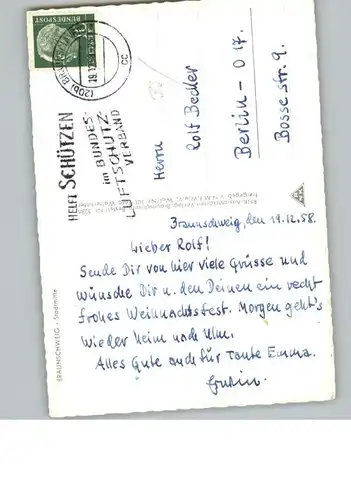 DEUTSCHE
BUNDESPOST
(20b) BRAUNSCHWEIG
19.12.58
cc
HELFT SCHÜTZEN
im BUNDES-
LUFTSCHUTZ-
VERBAND
Herrn
Rolf Becker
Berlin - O 17.
Bosse str. 9.
BRAUNSCHWEIG - Stadtmitte
Braunschweig, den 19.12.58.
Lieber Rolf!
Sende Dir von hier viele Grüsse und
wünsche Dir u. den Deinen ein recht
frohes Weihnachtsfest. Morgen geht's
wieder heim nach Ulm.
Alles Gute auch für Tante Emma.
Erwin.